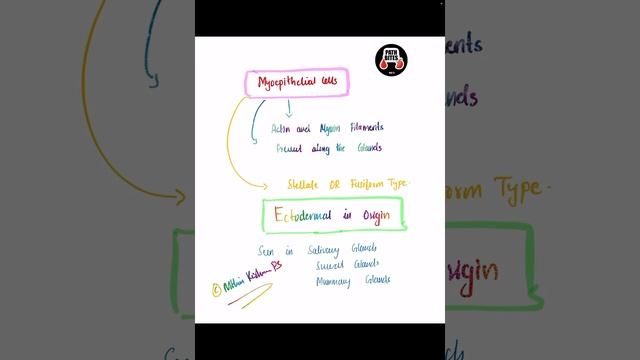 PATH
BITES
Myoepithelial Cells
Actin and Myosin Filaments
Present along the Glands
Stellate OR Fusiform Type.
Ectodermal in Origin
Seen in Salivary Glands
Sweat Glands
Mammary Glands
© Krishna PS
ments
ands
orm Type.
rigin